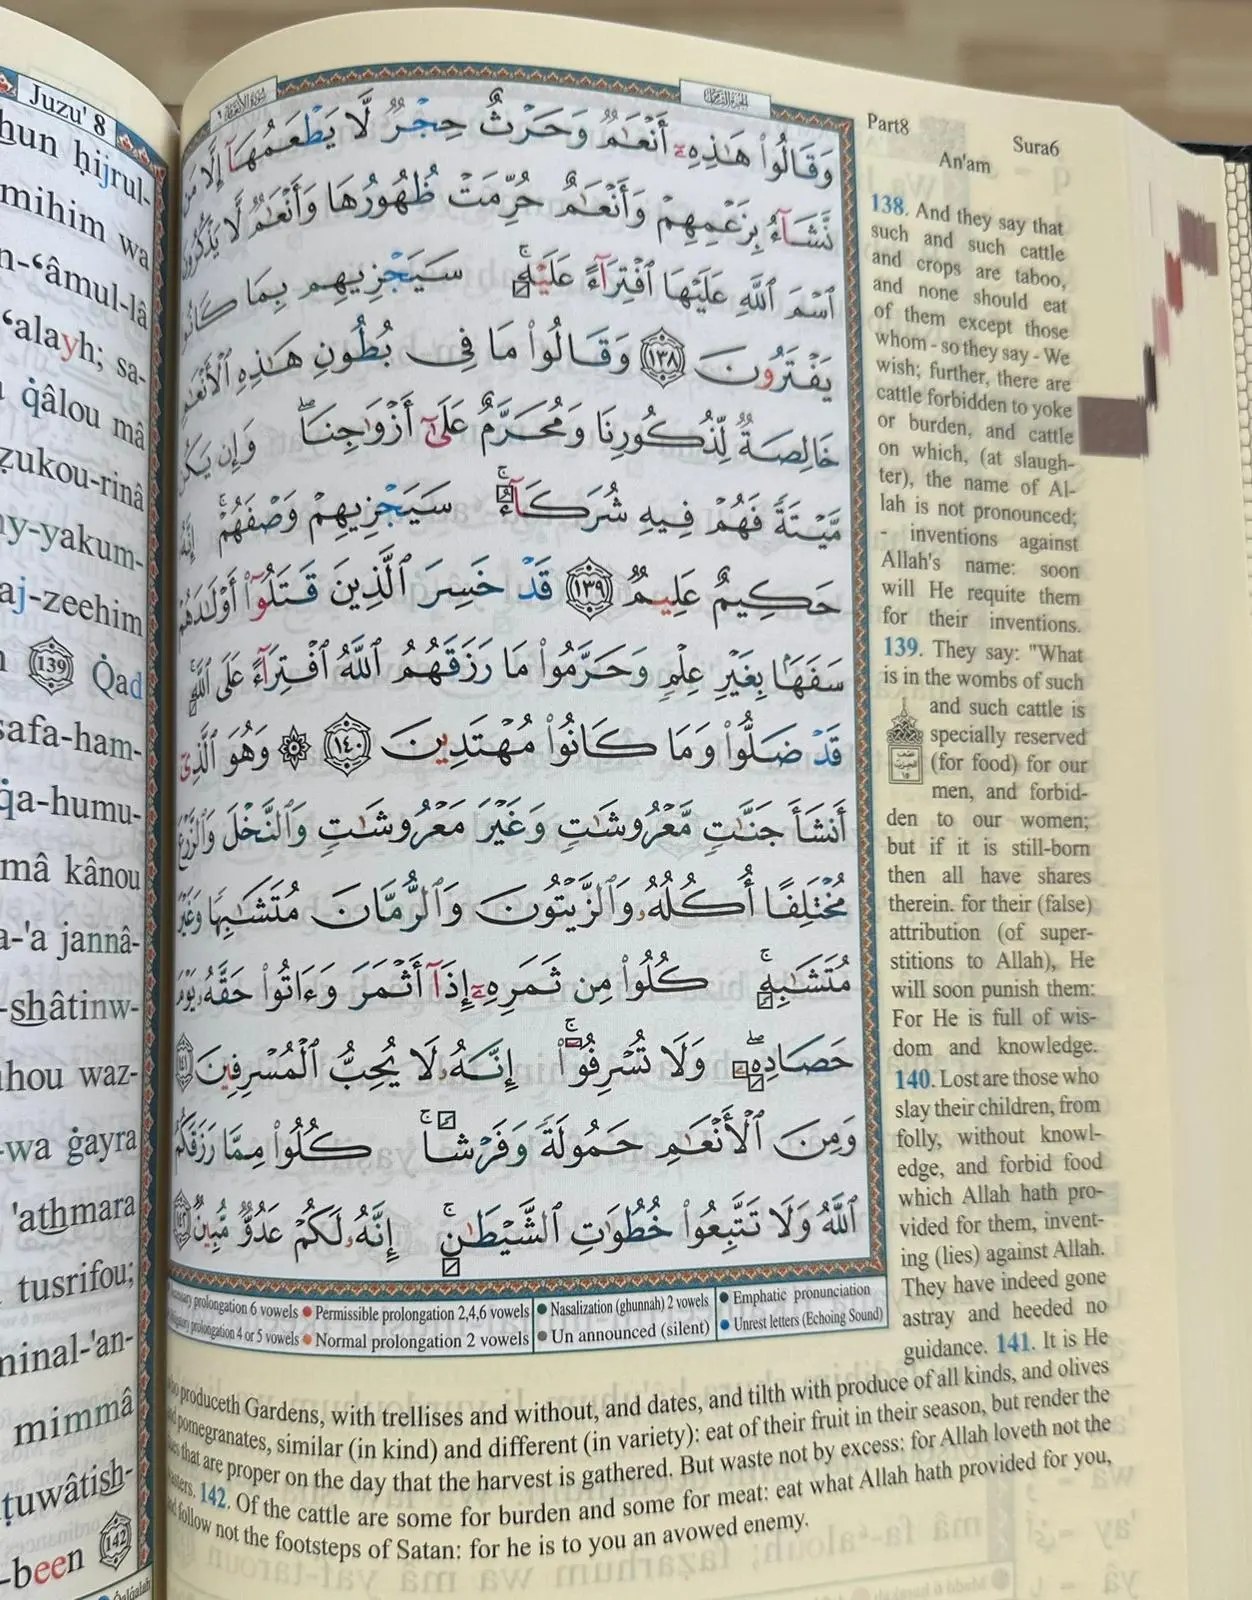 Juzu' 8
hun ḥijrul-
mihim wa
n-‘âmul-lâ
‘alayh; sa-
q̇âlou mâ
zukou-rinâ
ny-yakum-
aj-zeehim
139 Q̇ad
safa-ham-
q̇a-humu-
mâ kânou
a-'a jannâ-
-shâtinw-
uhou waz-
-wa ġayra
'athmara
tusrifou;
minal-'an-
mimmâ
ṭuwâtish-
-been 142
وَقَالُوا۟ هَـٰذِهِۦٓ أَنْعَـٰمٌ وَحَرْثٌ حِجْرٌ لَّا يَطْعَمُهَآ إِلَّا مَن
نَّشَآءُ بِزَعْمِهِمْ وَأَنْعَـٰمٌ حُرِّمَتْ ظُهُورُهَا وَأَنْعَـٰمٌ لَّا يَذْكُرُونَ
ٱسْمَ ٱللَّهِ عَلَيْهَا ٱفْتِرَآءً عَلَيْهِ ۚ سَيَجْزِيهِم بِمَا كَانُوا۟
يَفْتَرُونَ ١٣٨ وَقَالُوا۟ مَا فِى بُطُونِ هَـٰذِهِ ٱلْأَنْعَـٰمِ
خَالِصَةٌ لِّذُكُورِنَا وَمُحَرَّمٌ عَلَىٰٓ أَزْوَٰجِنَا ۖ وَإِن يَكُن
مَّيْتَةً فَهُمْ فِيهِ شُرَكَآءُ ۚ سَيَجْزِيهِمْ وَصْفَهُمْ ۚ إِنَّهُۥ
حَكِيمٌ عَلِيمٌ ١٣٩ قَدْ خَسِرَ ٱلَّذِينَ قَتَلُوٓا۟ أَوْلَـٰدَهُمْ
سَفَهًۢا بِغَيْرِ عِلْمٍ وَحَرَّمُوا۟ مَا رَزَقَهُمُ ٱللَّهُ ٱفْتِرَآءً عَلَى ٱللَّهِ ۚ
قَدْ ضَلُّوا۟ وَمَا كَانُوا۟ مُهْتَدِينَ ١٤٠ ۞ وَهُوَ ٱلَّذِىٓ
أَنشَأَ جَنَّـٰتٍ مَّعْرُوشَـٰتٍ وَغَيْرَ مَعْرُوشَـٰتٍ وَٱلنَّخْلَ وَٱلزَّرْعَ
مُخْتَلِفًا أُكُلُهُۥ وَٱلزَّيْتُونَ وَٱلرُّمَّانَ مُتَشَـٰبِهًا وَغَيْرَ
مُتَشَـٰبِهٍ ۚ كُلُوا۟ مِن ثَمَرِهِۦٓ إِذَآ أَثْمَرَ وَءَاتُوا۟ حَقَّهُۥ يَوْمَ
حَصَادِهِۦ ۖ وَلَا تُسْرِفُوٓا۟ ۚ إِنَّهُۥ لَا يُحِبُّ ٱلْمُسْرِفِينَ ١٤١
وَمِنَ ٱلْأَنْعَـٰمِ حَمُولَةً وَفَرْشًا ۚ كُلُوا۟ مِمَّا رَزَقَكُمُ
ٱللَّهُ وَلَا تَتَّبِعُوا۟ خُطُوَٰتِ ٱلشَّيْطَـٰنِ ۚ إِنَّهُۥ لَكُمْ عَدُوٌّ مُّبِينٌ ١٤٢
prolongation 6 vowels ● Permissible prolongation 2,4,6 vowels
prolongation 4 or 5 vowels ● Normal prolongation 2 vowels
● Nasalization (ghunnah) 2 vowels
● Un announced (silent)
● Emphatic pronunciation
● Unrest letters (Echoing Sound)
Part8
Sura6
An'am
138. And they say that
such and such cattle
and crops are taboo,
and none should eat
of them except those
whom - so they say - We
wish; further, there are
cattle forbidden to yoke
or burden, and cattle
on which, (at slaugh-
ter), the name of Al-
lah is not pronounced;
- inventions against
Allah's name: soon
will He requite them
for their inventions.
139. They say: "What
is in the wombs of such
and such cattle is
specially reserved
(for food) for our
men, and forbid-
den to our women;
but if it is still-born
then all have shares
therein. for their (false)
attribution (of super-
stitions to Allah), He
will soon punish them:
For He is full of wis-
dom and knowledge.
140. Lost are those who
slay their children, from
folly, without knowl-
edge, and forbid food
which Allah hath pro-
vided for them, invent-
ing (lies) against Allah.
They have indeed gone
astray and heeded no
guidance. 141. It is He
produceth Gardens, with trellises and without, and dates, and tilth with produce of all kinds, and olives
pomegranates, similar (in kind) and different (in variety): eat of their fruit in their season, but render the
that are proper on the day that the harvest is gathered. But waste not by excess: for Allah loveth not the
142. Of the cattle are some for burden and some for meat: eat what Allah hath provided for you,
follow not the footsteps of Satan: for he is to you an avowed enemy.